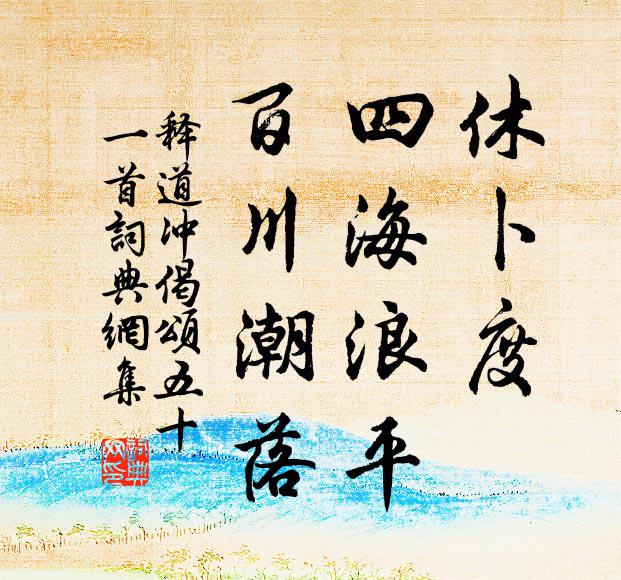 休卜度
四海浪平
百川潮落
释道冲偈頌五十
一首詞典網集